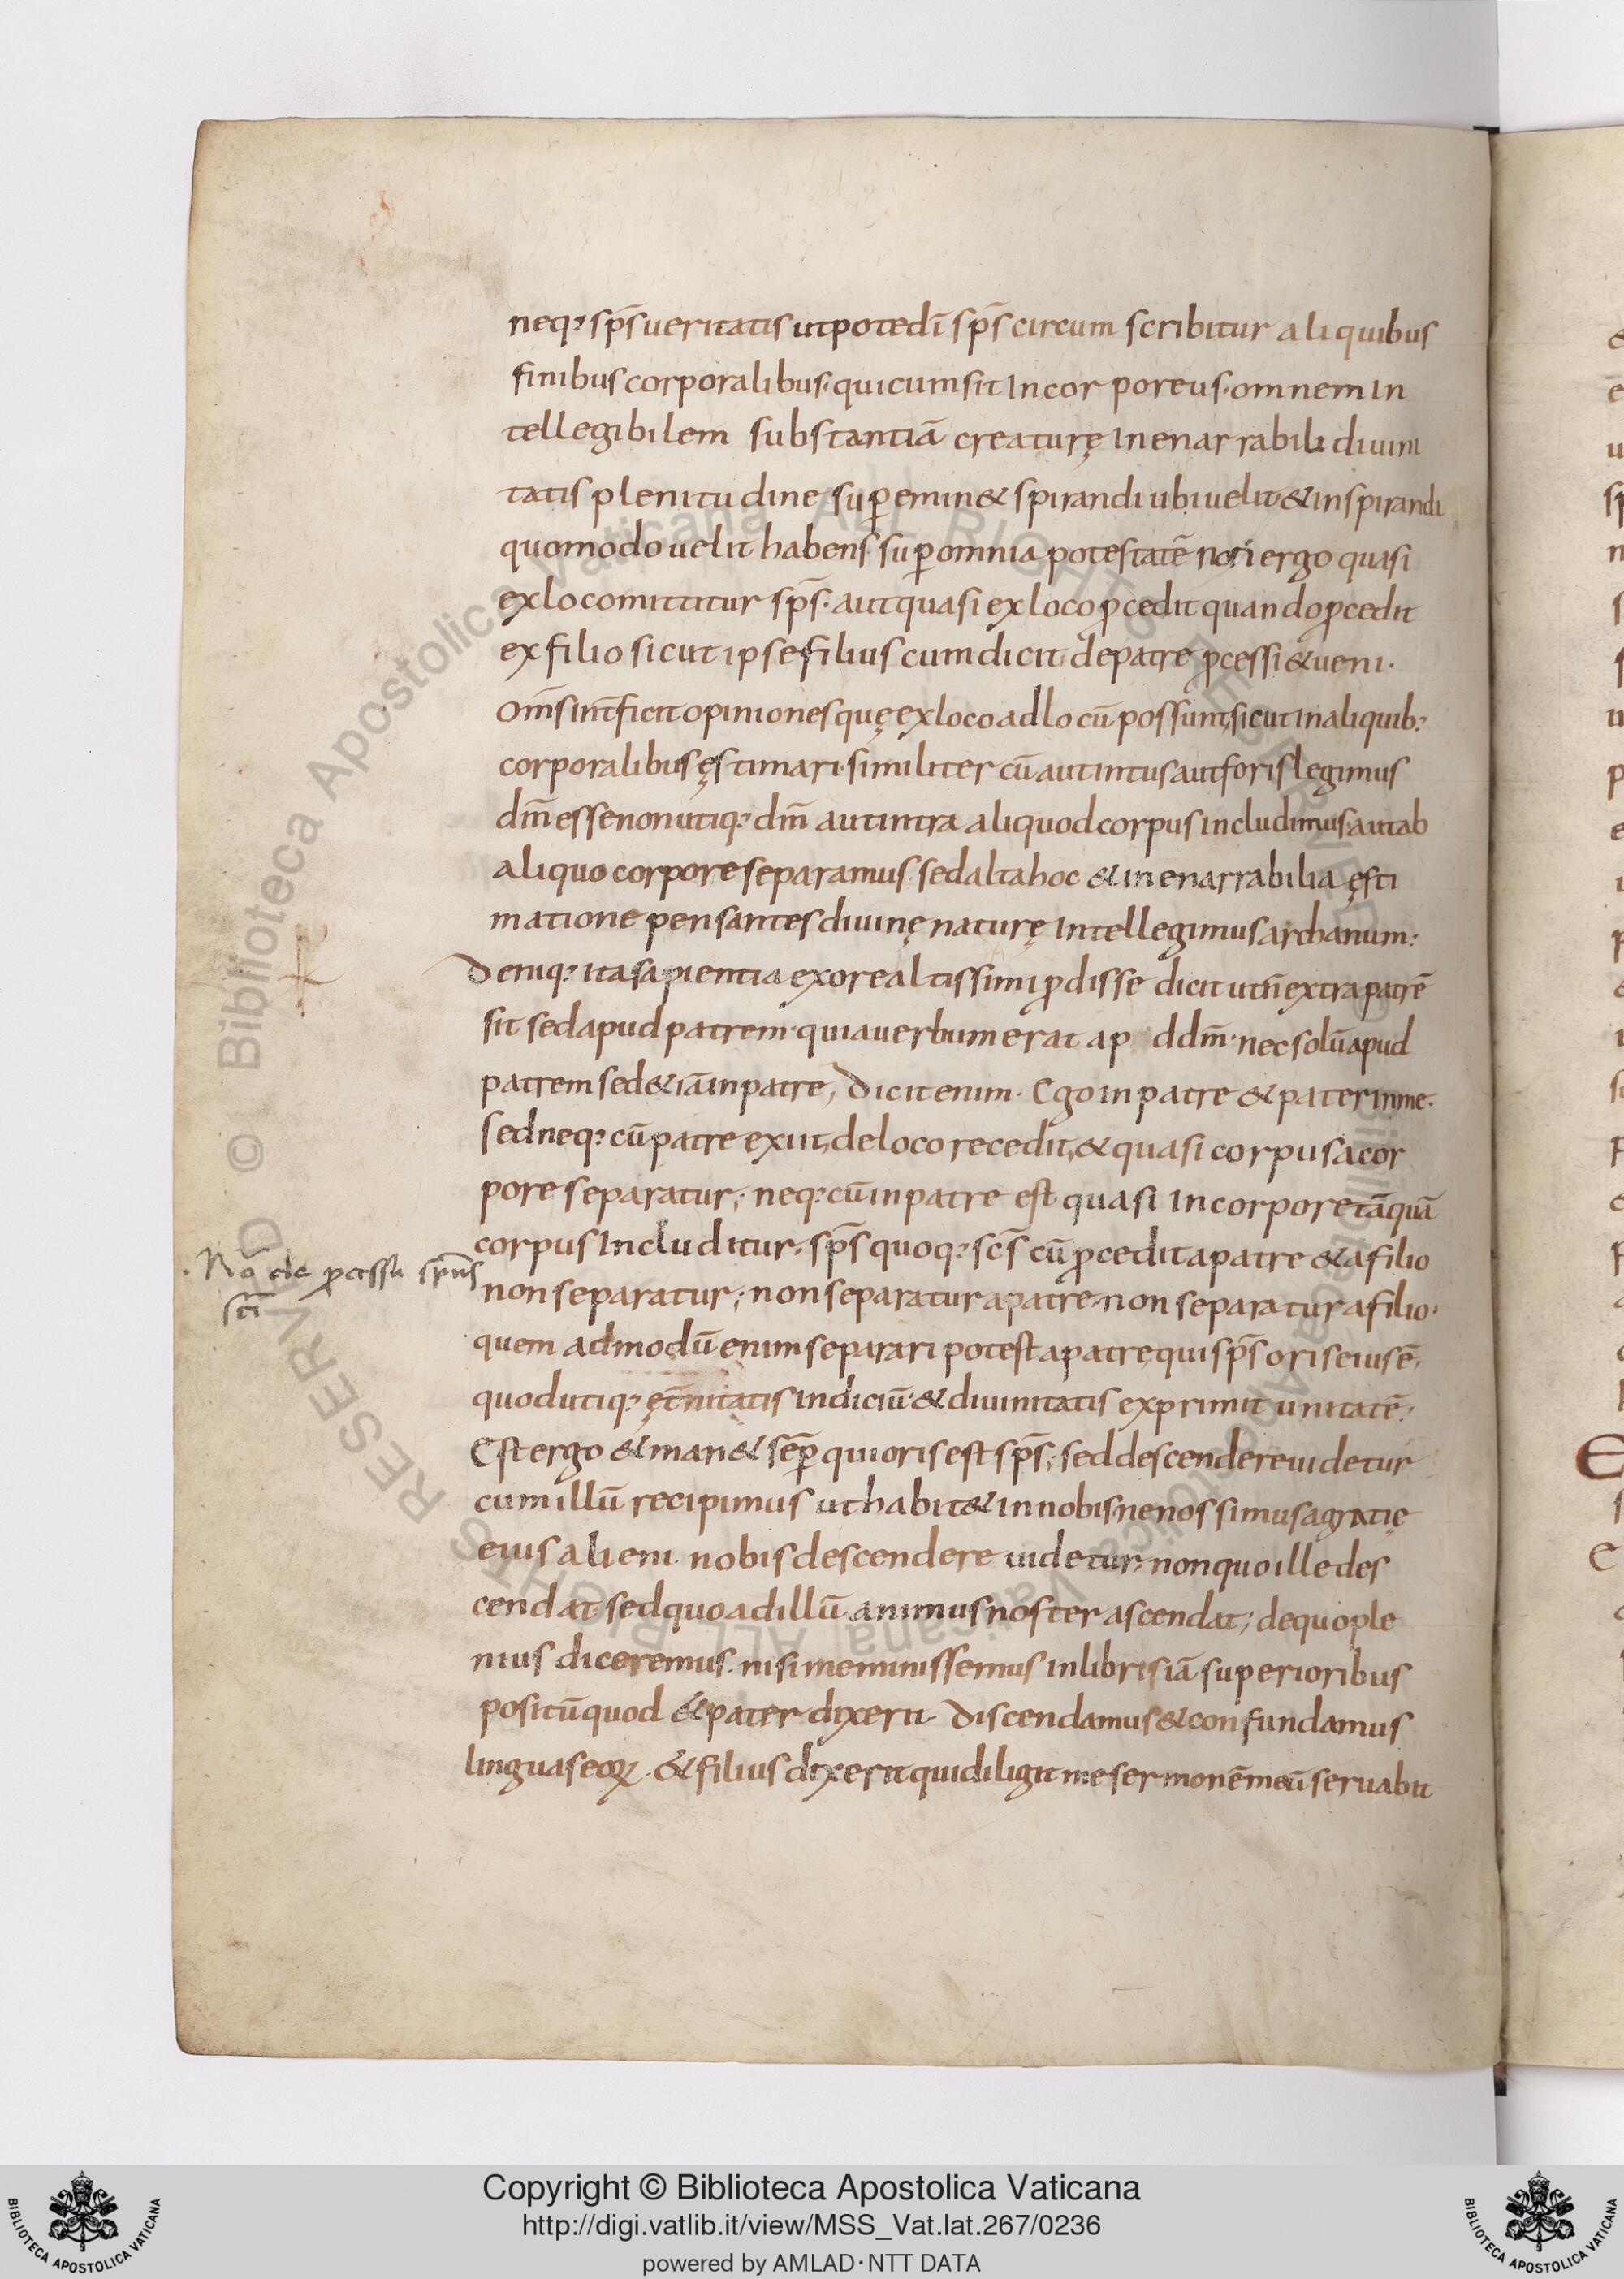 neq; sp̄s ueritatis utpote dī sp̄s circum scribitur aliquibus
finibus corporalibus· qui cum sit incorporeus· omnem in
tellegibilem substantiā creaturę inenarrabili diuini
tatis plenitudine sup̱emin& spirandi ubi uelit & inspirandi
quomodo uelit habens sup̱ omnia potestatē non ergo quasi
ex loco mittitur sp̄s· aut quasi ex loco ꝓcedit quando ꝓcedit
ex filio sicut ipse filius cum dicit· de patre ꝓcessi & ueni·
om̄s int̄ficit opiniones quę ex loco ad locū possunt, sicut in aliquib;
corporalibus ęstimari· similiter cū aut intus aut foris legimus
dm̄ esse non utiq; dm̄ aut intra aliquod corpus includimus aut ab
aliquo corpore separamus· sed alta hoc & inenarrabili a ęsti
matione pensantes diuinę naturę intellegimus archanum:
Deniq; ita sapientia ex ore altissimi ꝓdisse dicit ut n̄ extra patrē
sit sed apud patrem· quia uerbum erat ap d dm̄· nec solū apud
patrem sed &iā in patre, Dicit enim· Ego in patre & pater in me·
sed neq; cū patre exiit, de loco recedit, & quasi corpus a cor
pore separatur; neq; cū in patre est quasi in corpore tāquā
corpus includitur· sp̄s quoq; sc̄s cū ꝓcedit a patre & a filio
· No de ꝓcessu sp̄us
sc̄i
non separatur; non separatur a patre· non separatur a filio·
quem admodū enim separari potest a patre qui sp̄s oris eius ē,
quod utiq; ęt̄nitatis indiciū· & diuinitatis exprimit unitatē·
Est ergo & man& semp̱ qui oris est sp̄s; sed descendere uidetur
cum illū recipimus ut habit& in nobis· ne nos simus a gratię
eius alieni· nobis descendere uidetur, non quo ille des
cendat· sed quo ad illū animus noster ascendat; de quo ple
nius diceremus· nisi meminissemus in libris iā superioribus
positū quod & pater dixerit· Discendamus & confundamus
linguas eoꝝ· & filius dixerit qui diligit me sermonē meū seruabit
Biblioteca Apostolica Vaticana ALL RIGHTS RESERVED ©
Biblioteca Apostolica Vaticana ALL RIGHTS RESERVED ©
BIBLIOTECA APOSTOLICA VATICANA
Copyright © Biblioteca Apostolica Vaticana
http://digi.vatlib.it/view/MSS_Vat.lat.267/0236
powered by AMLAD·NTT DATA
BIBLIOTECA APOSTOLICA VATICANA